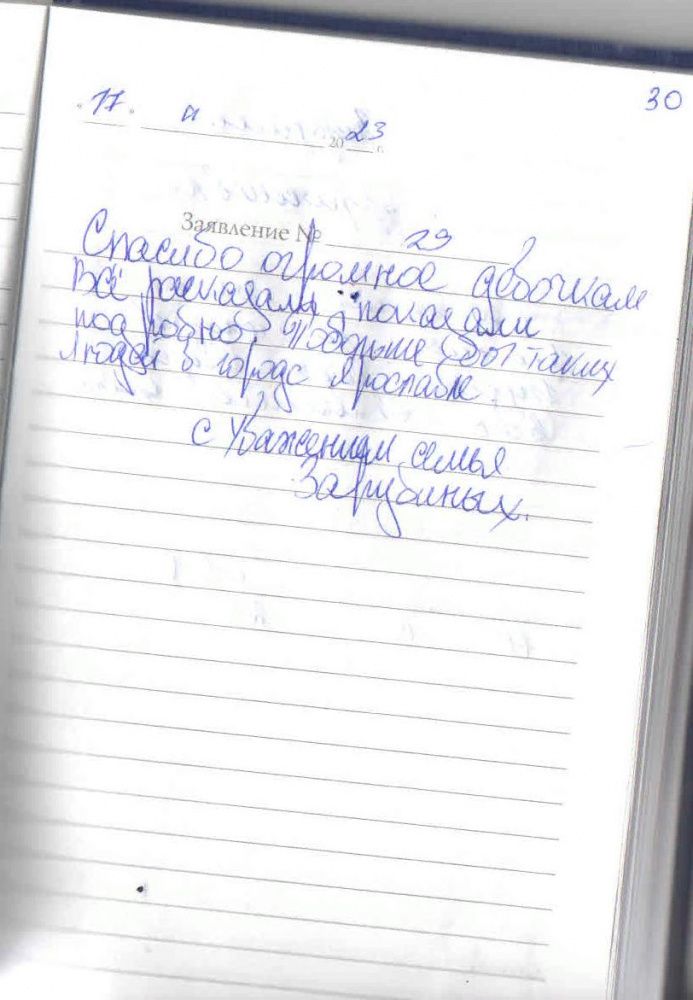 30
"17" 2023 г.
Заявление № 29
Спасибо огромное девочкам
Всё расказали, показали
подробно. Побольше бы таких
людей в городе Ярославле
с Уважением семья
Зарубиных.